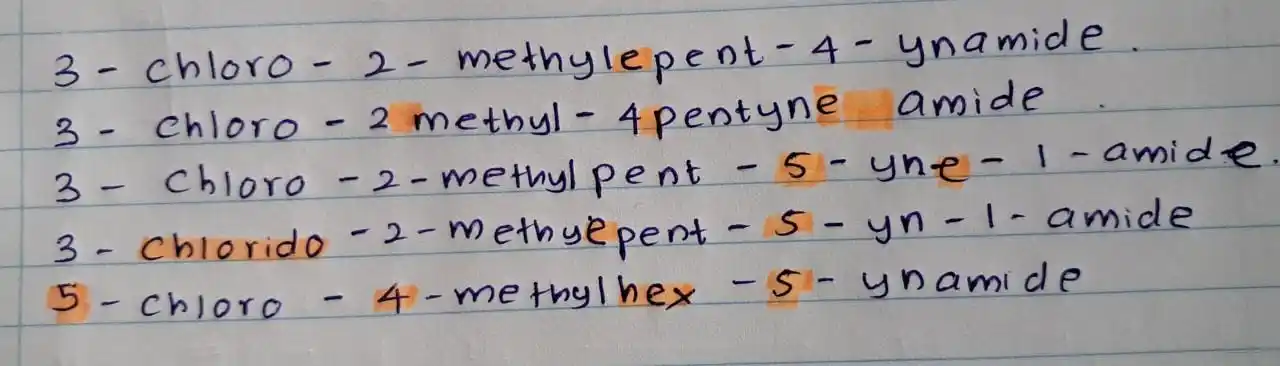 3 - chloro - 2 - methylepent - 4 - ynamide.
3 - chloro - 2 methyl - 4 pentyne amide.
3 - Chloro - 2 - methylpent - 5 - yne - 1 - amide.
3 - Chlorido - 2 - methyepent - 5 - yn - 1 - amide
5 - Chloro - 4 - methylhex - 5 - ynamide